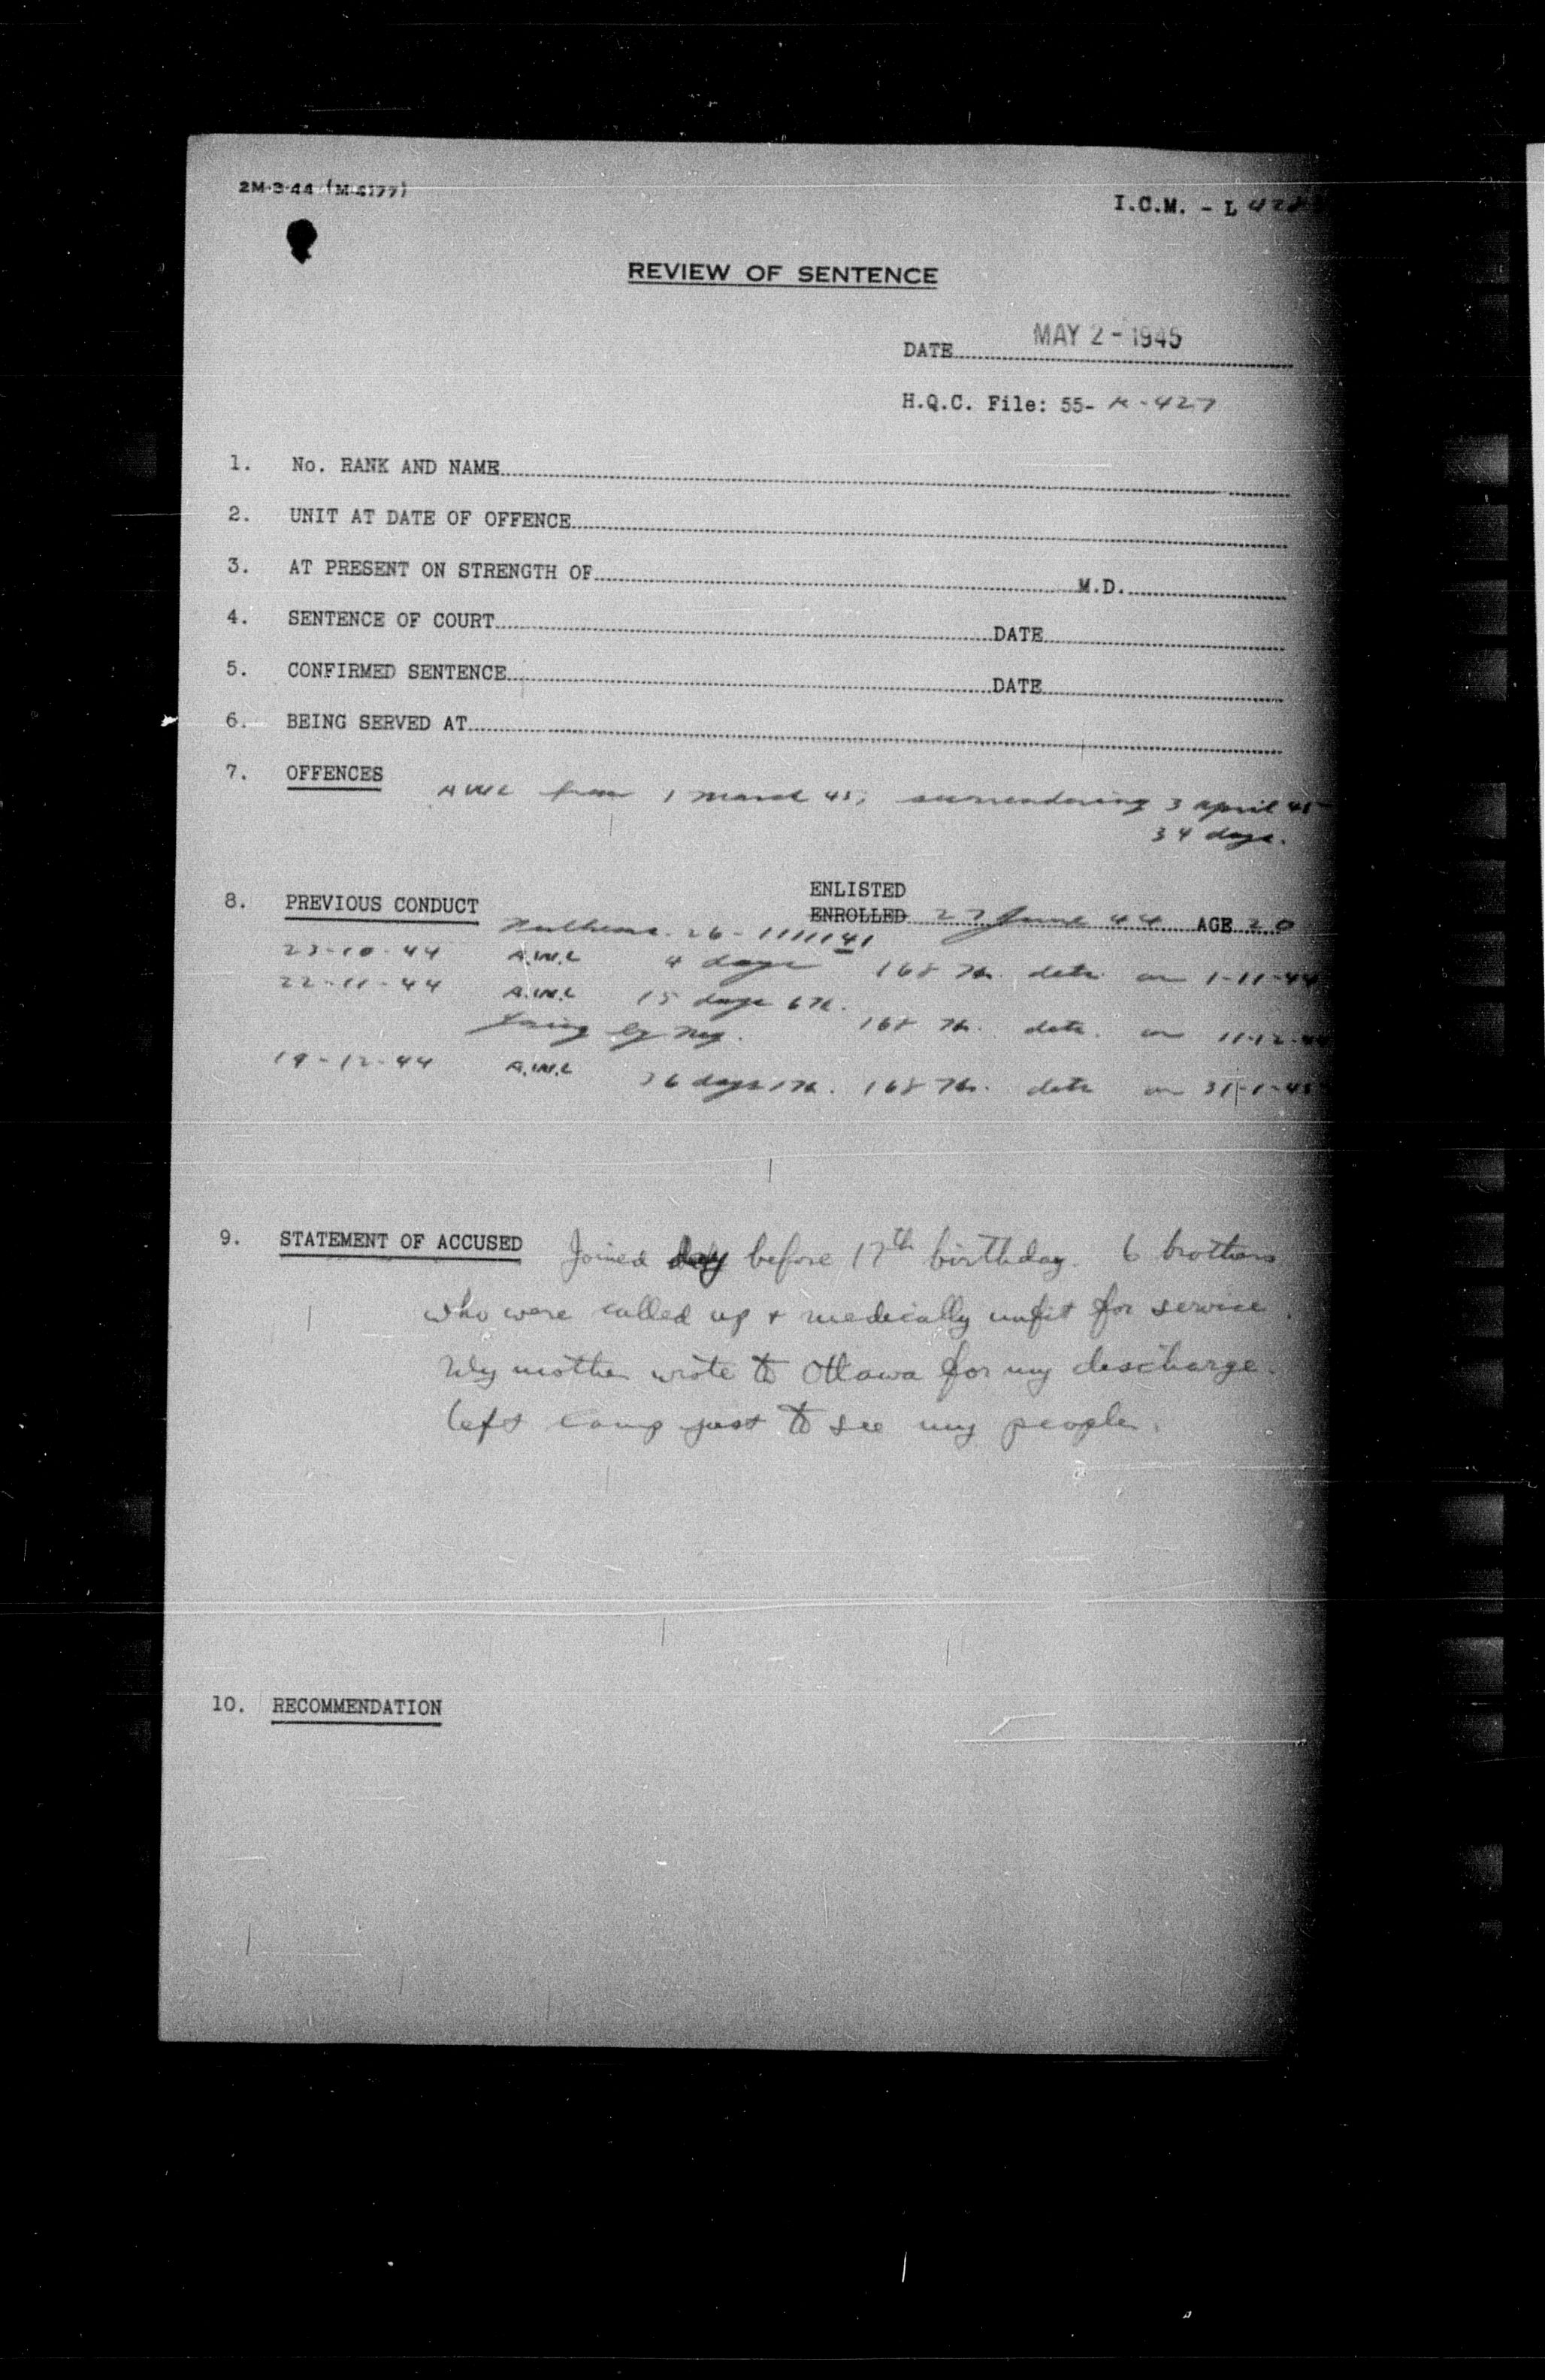 2M-3-44 (M-4177)
I.C.M. - L 428
REVIEW OF SENTENCE
DATE MAY 2 - 1945
H.Q.C. File: 55- K-427
1. No. RANK AND NAME
2. UNIT AT DATE OF OFFENCE
3. AT PRESENT ON STRENGTH OF M.D.
4. SENTENCE OF COURT DATE
5. CONFIRMED SENTENCE DATE
6. BEING SERVED AT
7. OFFENCES AWL from 1 March 45, surrendering 3 April 45
34 days.
8. PREVIOUS CONDUCT ENLISTED
ENROLLED 27 June 44 AGE 20
26 - 111141
23-10-44 A.W.L 4 days 168 hrs. detn on 1-11-44
22-11-44 A.W.L 15 days 6 h.
168 hrs. detn. on 11-12-44
19-12-44 A.W.L 36 days 1 h. 168 hrs. detn on 31-1-45
9. STATEMENT OF ACCUSED Joined day before 17th birthday. 6 brothers
who were called up + medically unfit for service.
My mother wrote to Ottawa for my discharge.
left camp just to see my people.
10. RECOMMENDATION